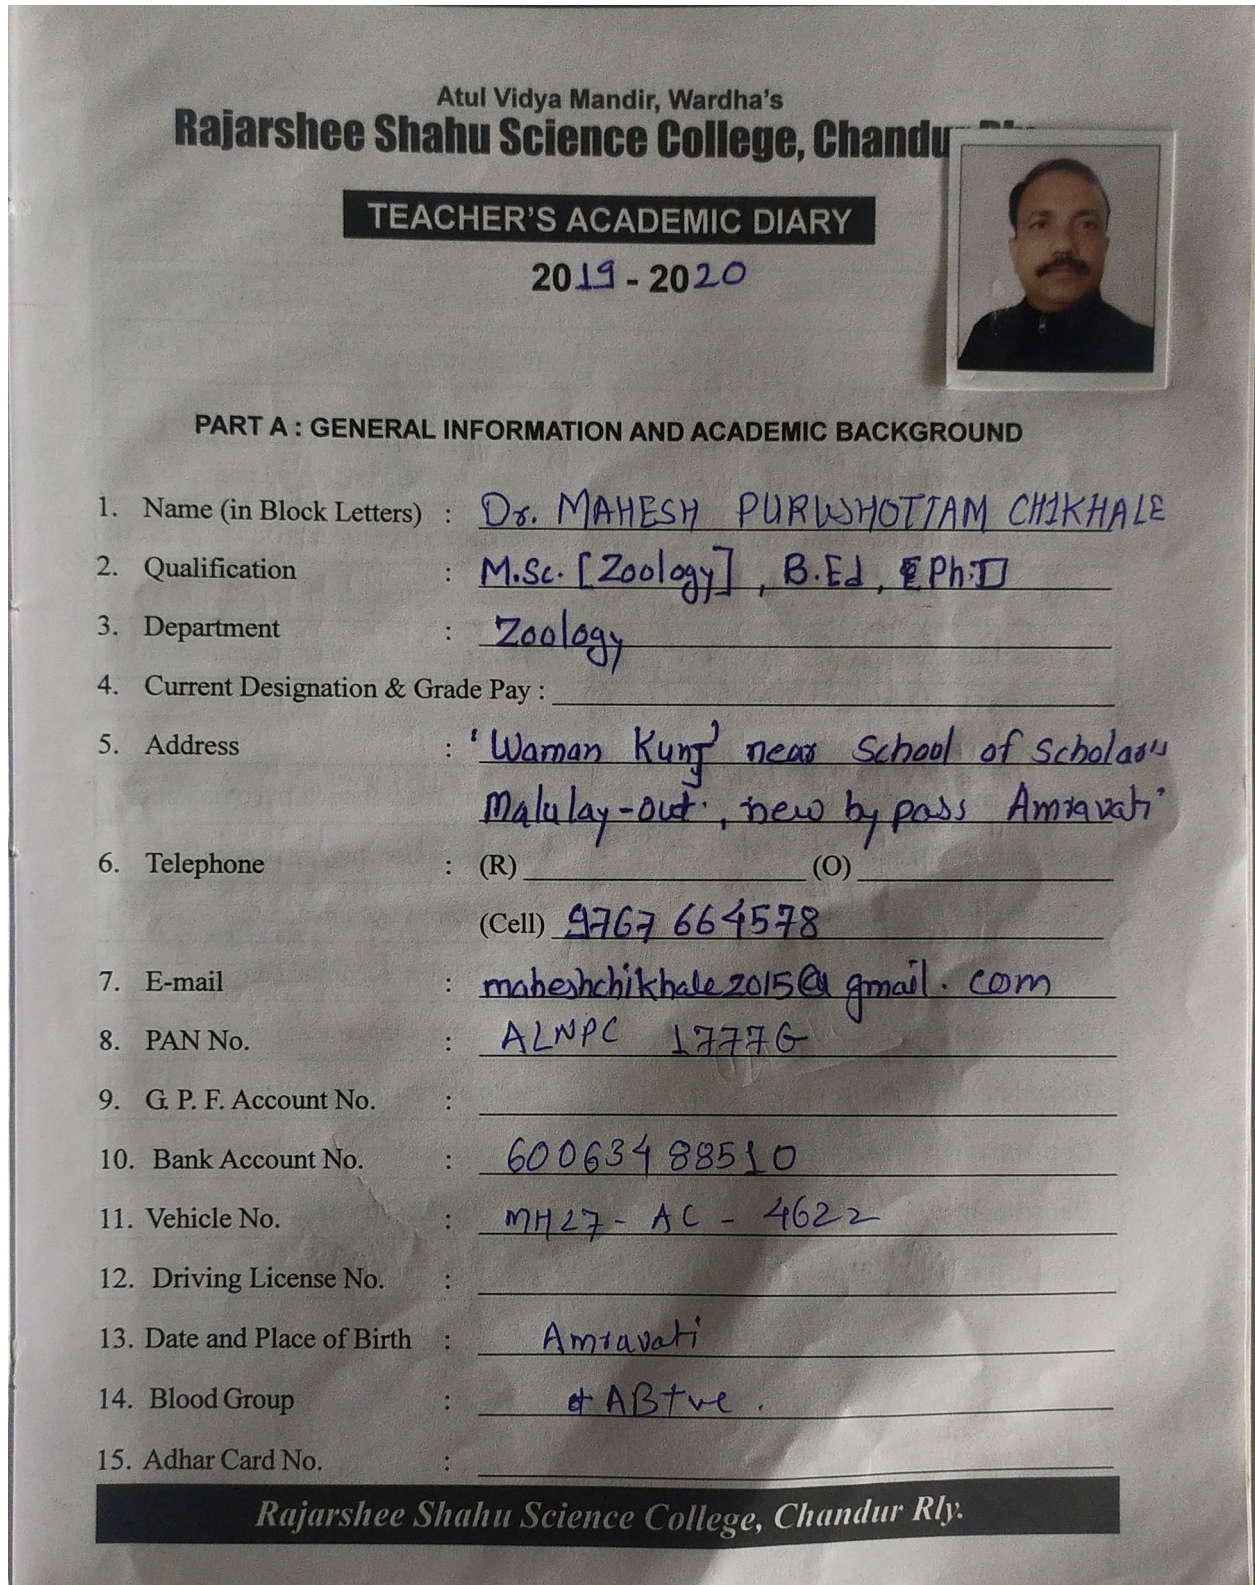 Atul Vidya Mandir, Wardha's
Rajarshee Shahu Science College, Chandur Rly.
TEACHER'S ACADEMIC DIARY
2019 - 2020
PART A : GENERAL INFORMATION AND ACADEMIC BACKGROUND
1. Name (in Block Letters) : Dr. MAHESH PURUSHOTTAM CHIKHALE
2. Qualification : M.Sc. [Zoology], B.Ed, Ph.D
3. Department : Zoology
4. Current Designation & Grade Pay :
5. Address : 'Waman Kunj' near School of Scholar's
Malulay-out, new by pass Amravati
6. Telephone : (R) (O)
(Cell) 9767 664578
7. E-mail : maheshchikhale2015@gmail.com
8. PAN No. : ALNPC 1777G
9. G. P. F. Account No. :
10. Bank Account No. : 60063488510
11. Vehicle No. : MH27 - AC - 4622
12. Driving License No. :
13. Date and Place of Birth : Amravati
14. Blood Group : AB+ve.
15. Adhar Card No. :
Rajarshee Shahu Science College, Chandur Rly.